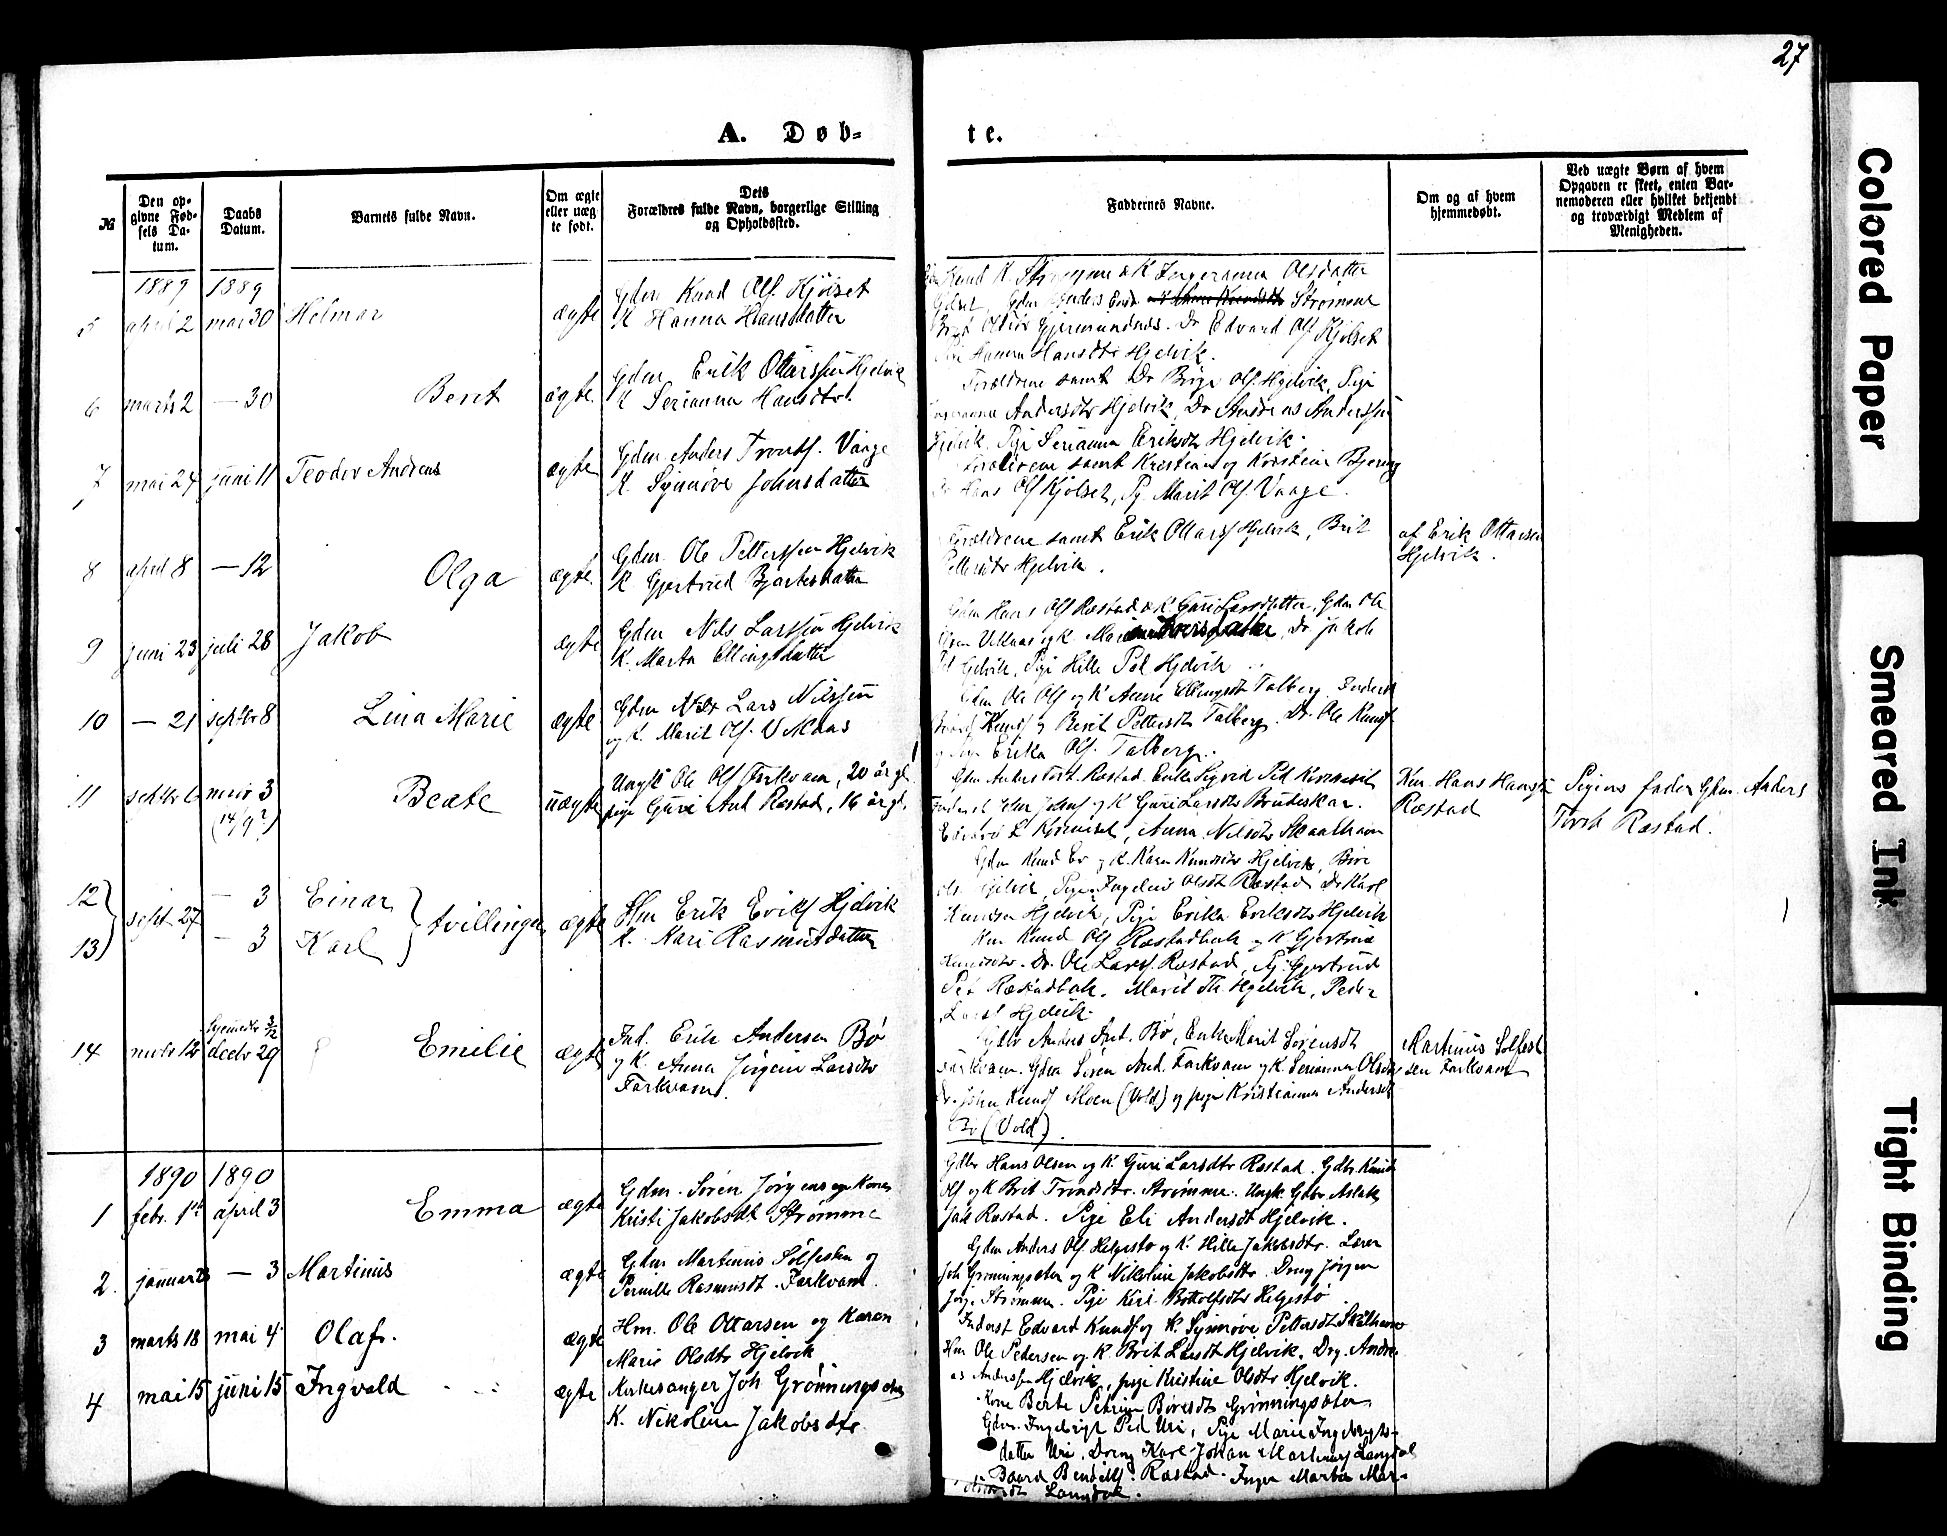 27
A. Døb-
te.
№
Den op-
givne Fød-
sels Da-
tum.
Daabs
Datum.
Barnets fulde Navn.
Om ægte
eller uæg
te født.
Dets
Forældres fulde Navn, borgerlige Stilling
og Opholdssted.
Faddernes Navne.
Om og af hvem
hjemmedøbt.
Ved uægte Børn af hvem
Opgaven er skeet, enten Bar-
nemoderen eller hvilket bekjendt
og troværdigt Medlem af
Menigheden.
1889 1889
5 april 2 mai 30 Helmar ægte
Gdm Knud Olf. Hjölset
K Hanna Hansdatter
Knud K Strömme & K Ingeranna Olsdatter
Gdm Anders Strömme
Dr Edvard Olf Kjölset
Hanna Hansdtr Hjelvik.
6 marts 2 — 30 Bent ægte.
Gdm Erik Ottarssen Hjelvik
K Serianna Hansdtr.
Forældrene samt Dr Börge Olf. Hjelvik, Pige
Andersdtr Hjelvik, Dr Andreas Anderssen
Hjelvik. Pige Serianna Eriksdtr Hjelvik.
7 mai 24 juni 11 Teodor Andreas ægte
Gdm Anders Trondf. Vaage
K Synnöve Johnsdatter
Forældrene samt Kristian og Kristine Bjering
Dr Hans Olf Kjölset, Pg. Marit Olf. Vaage.
8 april 8 — 12 Olga ægte.
Gdm Ole Petterssen Hjelvik
K. Gjertrud Bjartesdatter
Forældrene samt Erik Ottarsf Hjelvik, Brit
Pettersdtr Hjelvik.
af Erik Ottarsen
Hjelvik.
9 juni 23 juli 28 Jakob ægte
Gdm Nils Larssen Hjelvik
K. Marta Ellingsdatter
Gdm Hans Olf Ræstad & K. Guri Larsdatter, Gdm Ole
Dr Jakob
Hjelvik, Pige Hille Ped Hjelvik
10 — 21 septbr 8 Lina Marie ægte
Gdm Lars Nilssen
og K. Marit Olf.
Gdm Ole Olf og K Anne Ellingsdt Talberg. Inderst
Knudf og Berit Pettersdt Talberg. Dr. Ole Knudf
Erika Olf. Talberg.
11 septbr 6 novbr 3 Beate uægte
(14/9?)
Ungk Ole Olf Farkvam, 20 år gl.
pige Guri And Ræstad, 16 år gl.
Gdm Anders Torst. Ræstad. Enke Sigrid Ped
og K Guri Larsdtr Brudeskar.
Anna Nilsdtr Skaalhavn
Hans Hansf
Ræstad
Pigens fader Gdm. Anders
Torst Ræstad.
12 sept. 27 — 3 Einar tvillinger ægte
13 — 3 Karl
Hm Erik Erikf Hjelvik
K. Kari Rasmusdatter
Gdm Knud Er og K. Karen Knudsdtr Hjelvik,
Hjelvik, Pige Ingeleiv Olsdt Ræstad, Dr Karl
Knudsen Hjelvik, Pige Erika Eriksdtr Hjelvik
Hm Knud Olf Ræstadbak og K Gjertrud
Knudsdtr. Dr. Ole Larsf. Ræstad, Pg. Gjertrud
Ped Ræstadbak. Marit Th. Hjelvik, Peder
Larsf Hjelvik.
14 novbr 12 hjemmedbt 3/12
decbr 29 Emilie ægte
Ind. Erik Andersen Bö
og K. Anna Jörgine Larsdtr
Farkvam.
Gdbr Anders And. Bö, Enke Marit Sörensdt
Farkvam. Gdm Sören And. Farkvam og K. Serianna Olsdtr
Dr. John Knudf Moen (Vold) og pige Kristianna Andersdt
Bö (Vold).
Martinus Solfest
sen Farkvam
1890 1890
1 febr. 1st april 3 Emma ægte
Gdm. Sören Jörgens og Kone
Kristi Jakobsdt Strömme
Gdbr Hans Olsen og K. Guri Larsdtr Ræstad. Gdbr. Knud
Olf og K Brit Trondsdtr. Strömme. Ungk. Gdbr. Aslak
Jak Ræstad. Pige Eli Andersdt Hjelvik.
2. januar — 3 Martinus ægte
Gdm Martinus Solfestsen og
Pernille Rasmusdt. Farkvam.
Gdm Anders Olf. Helgestö og K. Hille Jakobsdtr. Lærer
Joh Grönningsæter og K Nikoline Jakobsdtr. Dreng Jörgen
Jörg. Strömme. Pige Kirs. Bottolfsdtr Helgestö
3 marts 18 mai 4 Olaf. ægte
Hm. Ole Ottarsen og Karen
Marie Olsdtr Hjelvik
Inderst Edvard Knudf og K. Synnöve Pettersdt Skålhavn
Hm Ole Pedersen og K. Brit Larsdt Hjelvik. Drg. Andre-
as Anderssen Hjelvik, pige Kristine Olsdtr Hjelvik.
4 mai 15 juni 15 Ingvald ægte
Kirkesanger Joh Grönningsæter
K. Nikoline Jakobsdtr.
Kone Berte Petrine Böresdt Grönningsæter.
Gdm. Ingebrigt Ped Uri, Pige Marie Ingebrigts-
datter Uri, Dreng Karl Johan Martinusf Langdal
Baard Bendikf. Ræstad. Inger Marta Mar-
tinusdt Langdal.
Colored Paper
Smeared Ink
Tight Binding